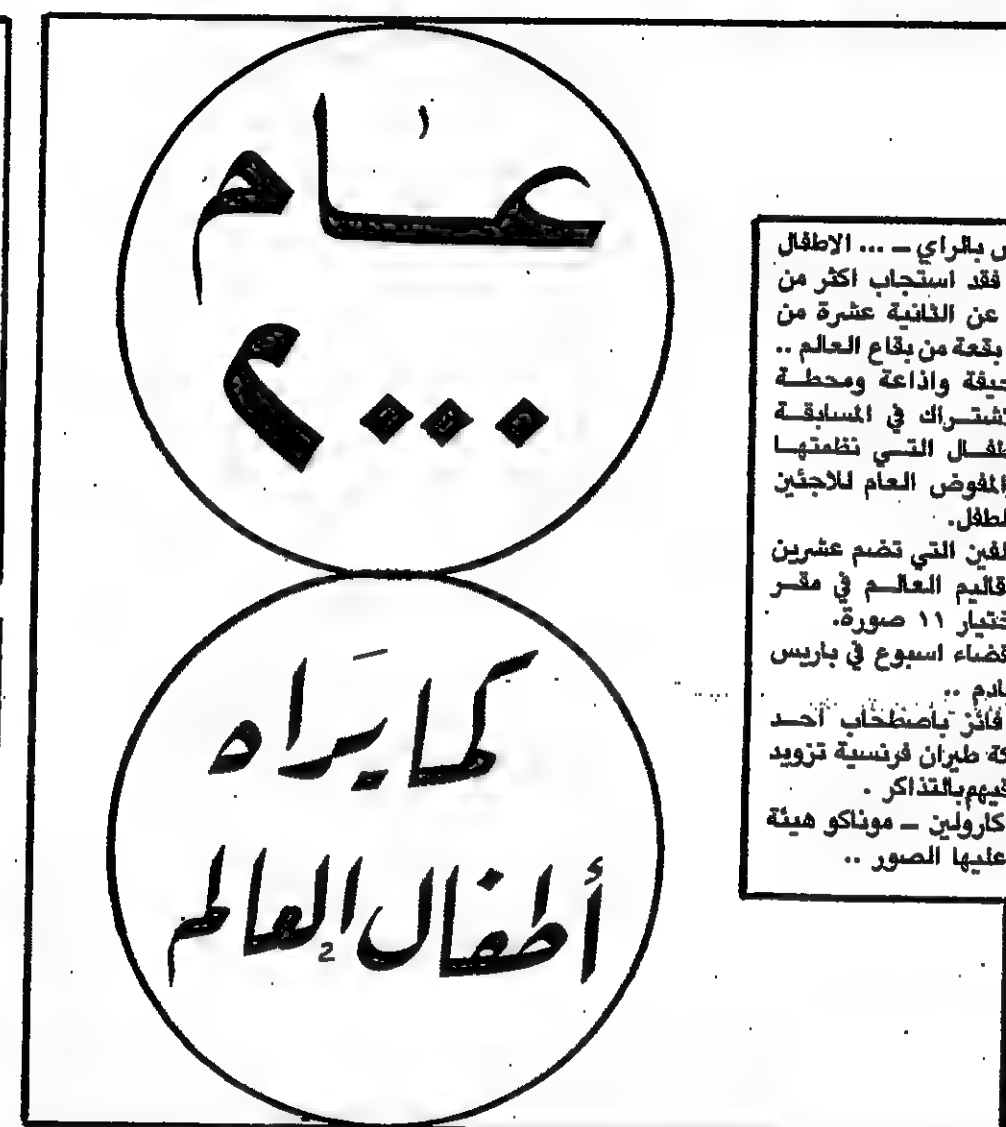 عام
٢٠٠٠
كما يراه
أطفال العالم
بالراي ــ ... الاطفال
فقد استجاب اكثر من
عن الثانية عشرة من
بقعة من بقاع العالم ..
واذاعة ومحطة
في المسابقة
التي نظمتها
المفوض العام للاجئين
التي تضم عشرين
العالم في مقر
١١ صورة.
قضاء اسبوع في باريس
فائز باصطحاب احد
طيران فرنسية تزويد
بالتذاكر .
كارولين ــ موناكو هيئة
عليها الصور ..